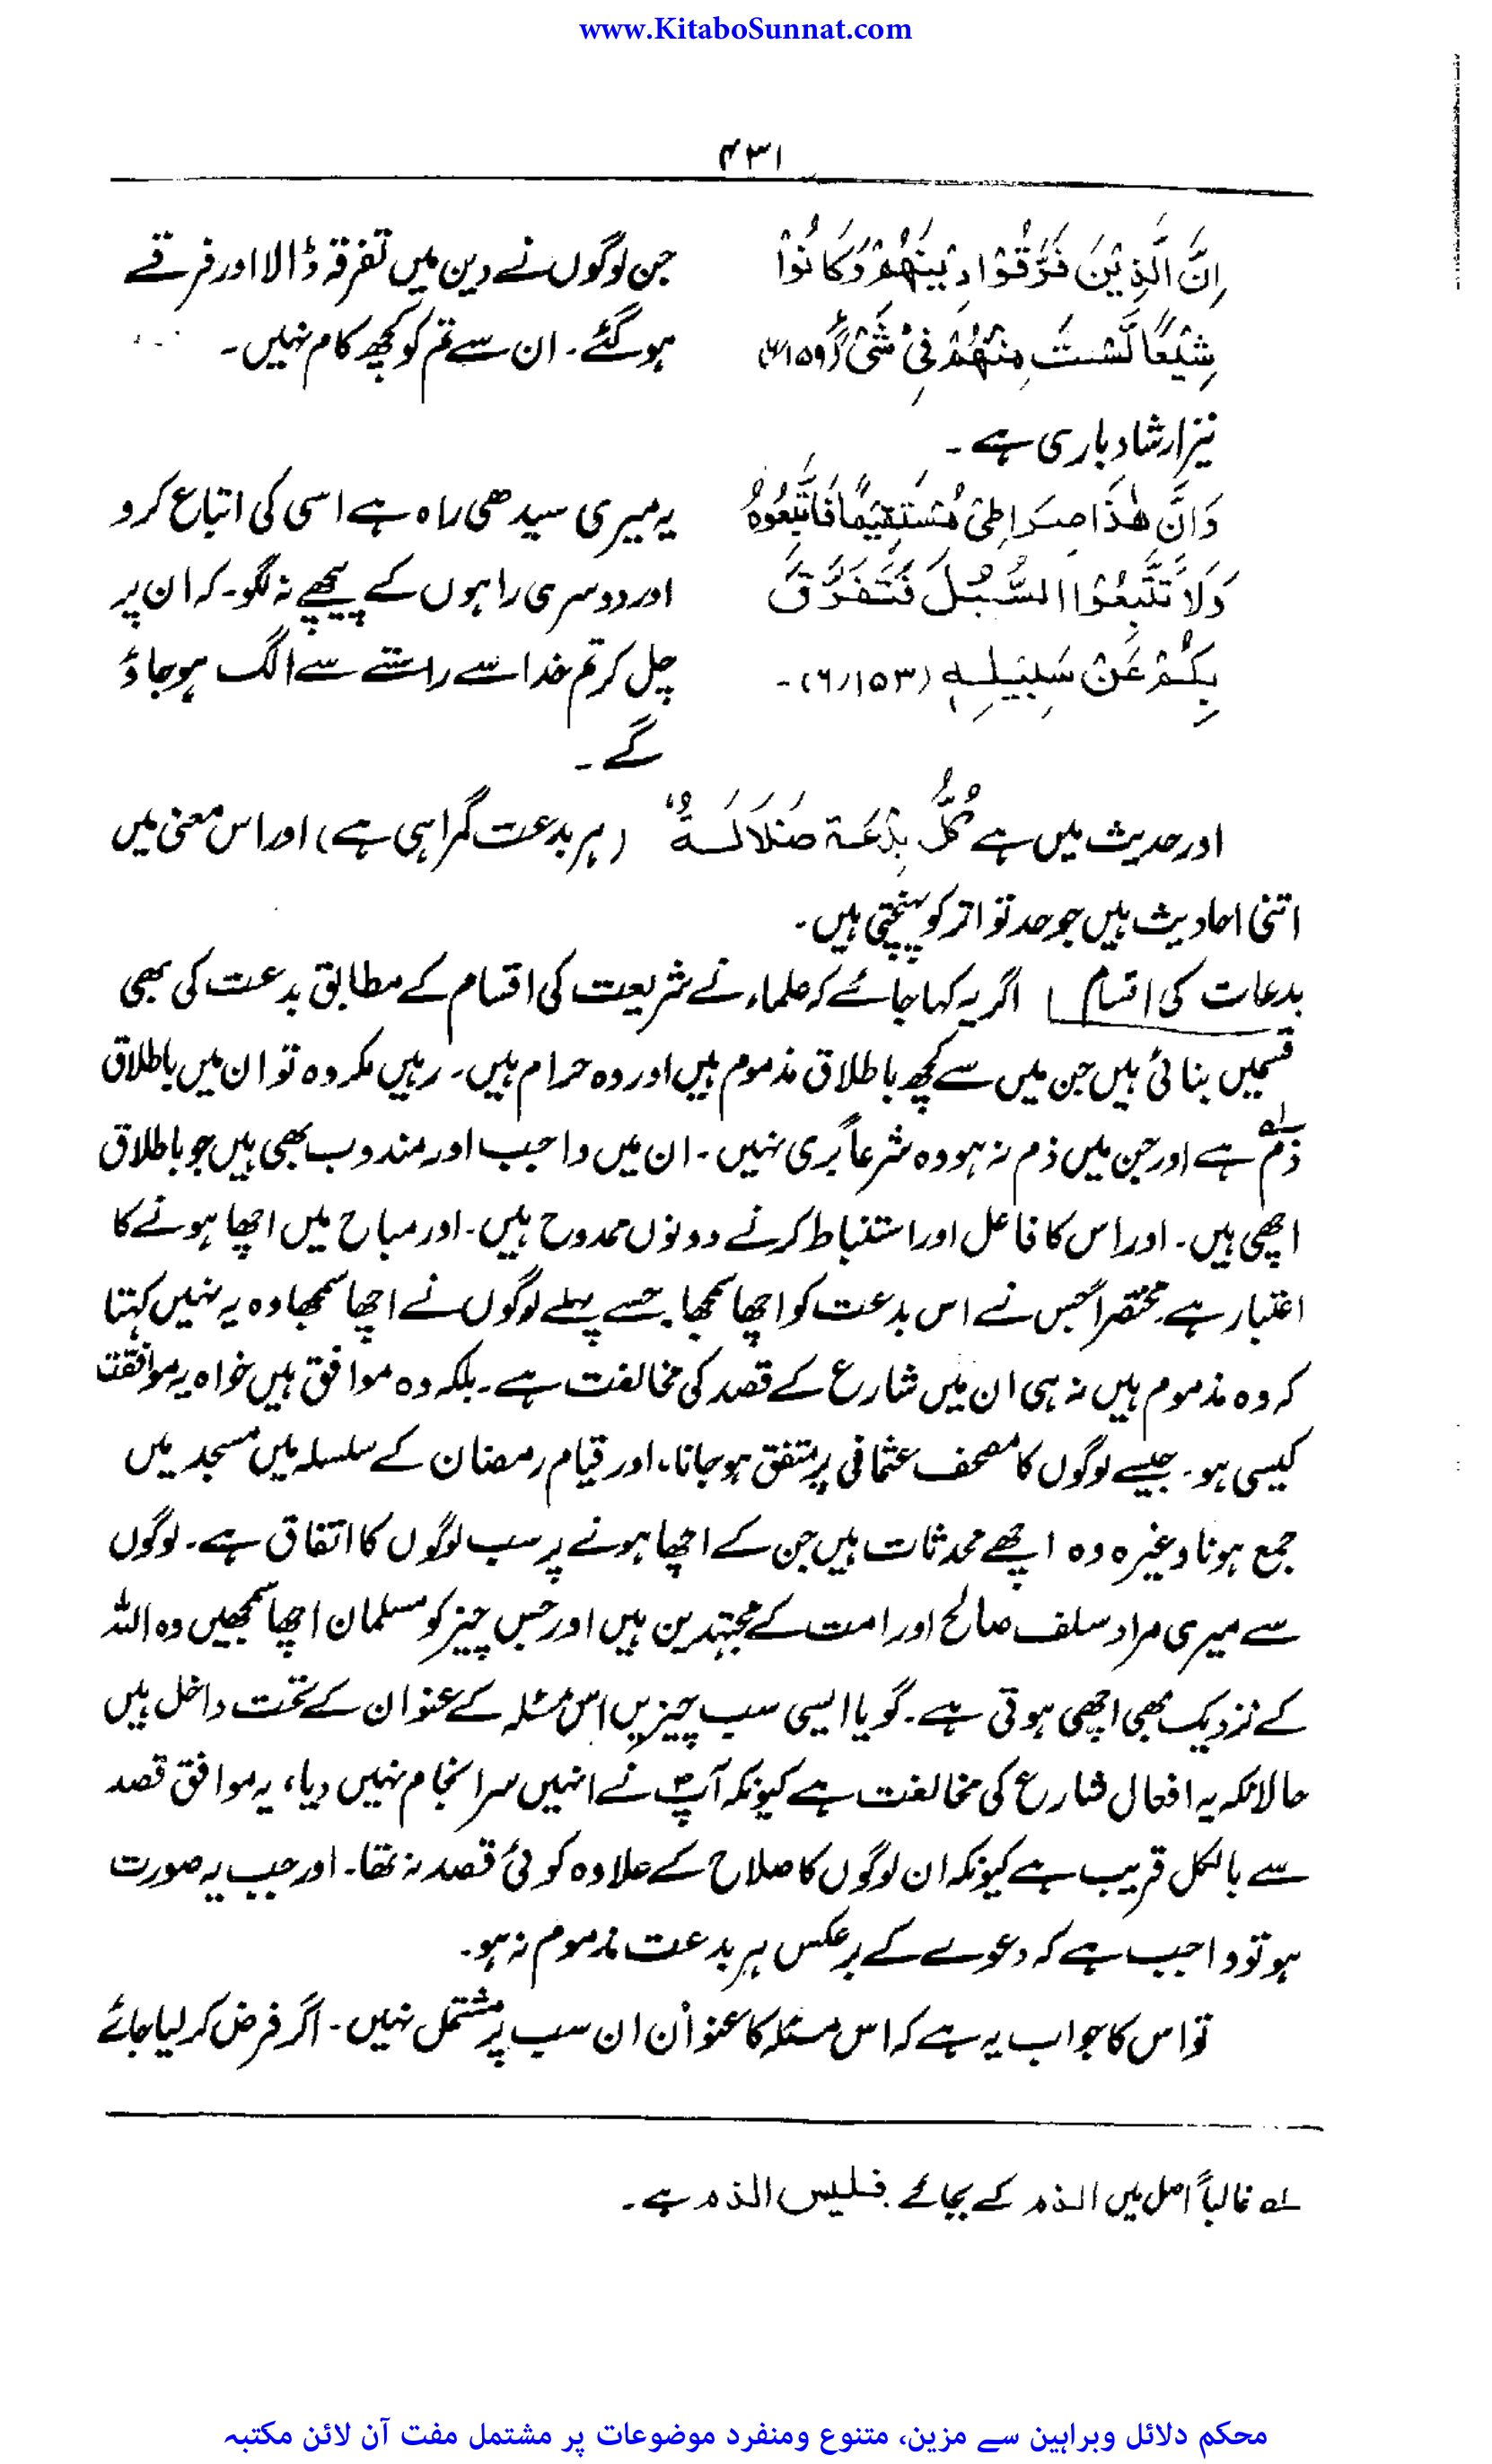 www.KitaboSunnat.com
۴۳۱
اِنَّ الَّذِیْنَ فَرَّقُوْا دِیْنَهُمْ وَكَانُوْا
شِیَعًا لَّسْتَ مِنْهُمْ فِیْ شَیْءٍ (۶/۱۵۹)
جن لوگوں نے دین میں تفرقہ ڈالا اور فرقے
ہو گئے۔ ان سے تم کو کچھ کام نہیں۔
نیز ارشاد باری ہے۔
وَاَنَّ هٰذَا صِرَاطِیْ مُسْتَقِیْمًا فَاتَّبِعُوْهُ
وَلَا تَتَّبِعُوْا السُّبُلَ فَتَفَرَّقَ
بِكُمْ عَنْ سَبِیْلِهٖ (۶/۱۵۳)۔
یہ میری سیدھی راہ ہے اسی کی اتباع کرو
اور دوسری راہوں کے پیچھے نہ لگو۔ کہ ان پر
چل کر تم خدا سے راستے سے الگ ہو جاؤ
گے۔
اور حدیث میں ہے كُلُّ بِدْعَة ضَلَالَةٌ (ہر بدعت گمراہی ہے) اور اس معنی میں
اتنی احادیث ہیں جو حد تواتر کو پہنچتی ہیں۔
بدعات کی اقسام اگر یہ کہا جائے کہ علماء نے شریعت کی اقسام کے مطابق بدعت کی بھی
قسمیں بنائی ہیں جن میں سے کچھ باطلاق مذموم ہیں اور وہ حرام ہیں۔ رہیں مکروہ تو ان میں باطلاق
ذم ؎۱ ہے اور جن میں ذم نہ ہو وہ شرعاً بری نہیں۔ ان میں واجب اور مندوب بھی ہیں جو باطلاق
اچھی ہیں۔ اور اس کا فاعل اور استنباط کرنے دونوں ممدوح ہیں۔ اور مباح میں اچھا ہونے کا
اعتبار ہے مختصراً جس نے اس بدعت کو اچھا سمجھا جسے پہلے لوگوں نے اچھا سمجھا وہ یہ نہیں کہتا
کہ وہ مذموم ہیں نہ ہی ان میں شارع کے قصد کی مخالفت ہے۔ بلکہ وہ موافق ہیں خواہ یہ موافقت
کیسی ہو۔ جیسے لوگوں کا مصحف عثمانی پر متفق ہو جانا، اور قیام رمضان کے سلسلہ میں مسجد میں
جمع ہونا وغیرہ وہ اچھے محدثات ہیں جن کے اچھا ہونے پر سب لوگوں کا اتفاق ہے۔ لوگوں
سے میری مراد سلف صالح اور امت کے مجتہدین ہیں اور جس چیز کو مسلمان اچھا سمجھیں وہ اللہ
کے نزدیک بھی اچھی ہوتی ہے۔ گویا ایسی سب چیزیں اس مسئلہ کے عنوان کے تحت داخل ہیں
حالانکہ یہ افعال شارع کی مخالفت ہے کیونکہ آپؐ نے انہیں سرانجام نہیں دیا، یہ موافق قصد
سے بالکل قریب ہے کیونکہ ان لوگوں کا صلاح کے علاوہ کوئی قصد نہ تھا۔ اور جب یہ صورت
ہو تو واجب ہے کہ دعوے کے برعکس ہر بدعت مذموم نہ ہو۔
تو اس کا جواب یہ ہے کہ اس مسئلہ کا عنوان ان سب پر مشتمل نہیں۔ اگر فرض کر لیا جائے
؎۱ غالباً اصل میں الذم کے بجائے فلیس الذم ہے۔
محکم دلائل وبراہین سے مزین، متنوع ومنفرد موضوعات پر مشتمل مفت آن لائن مکتبہ